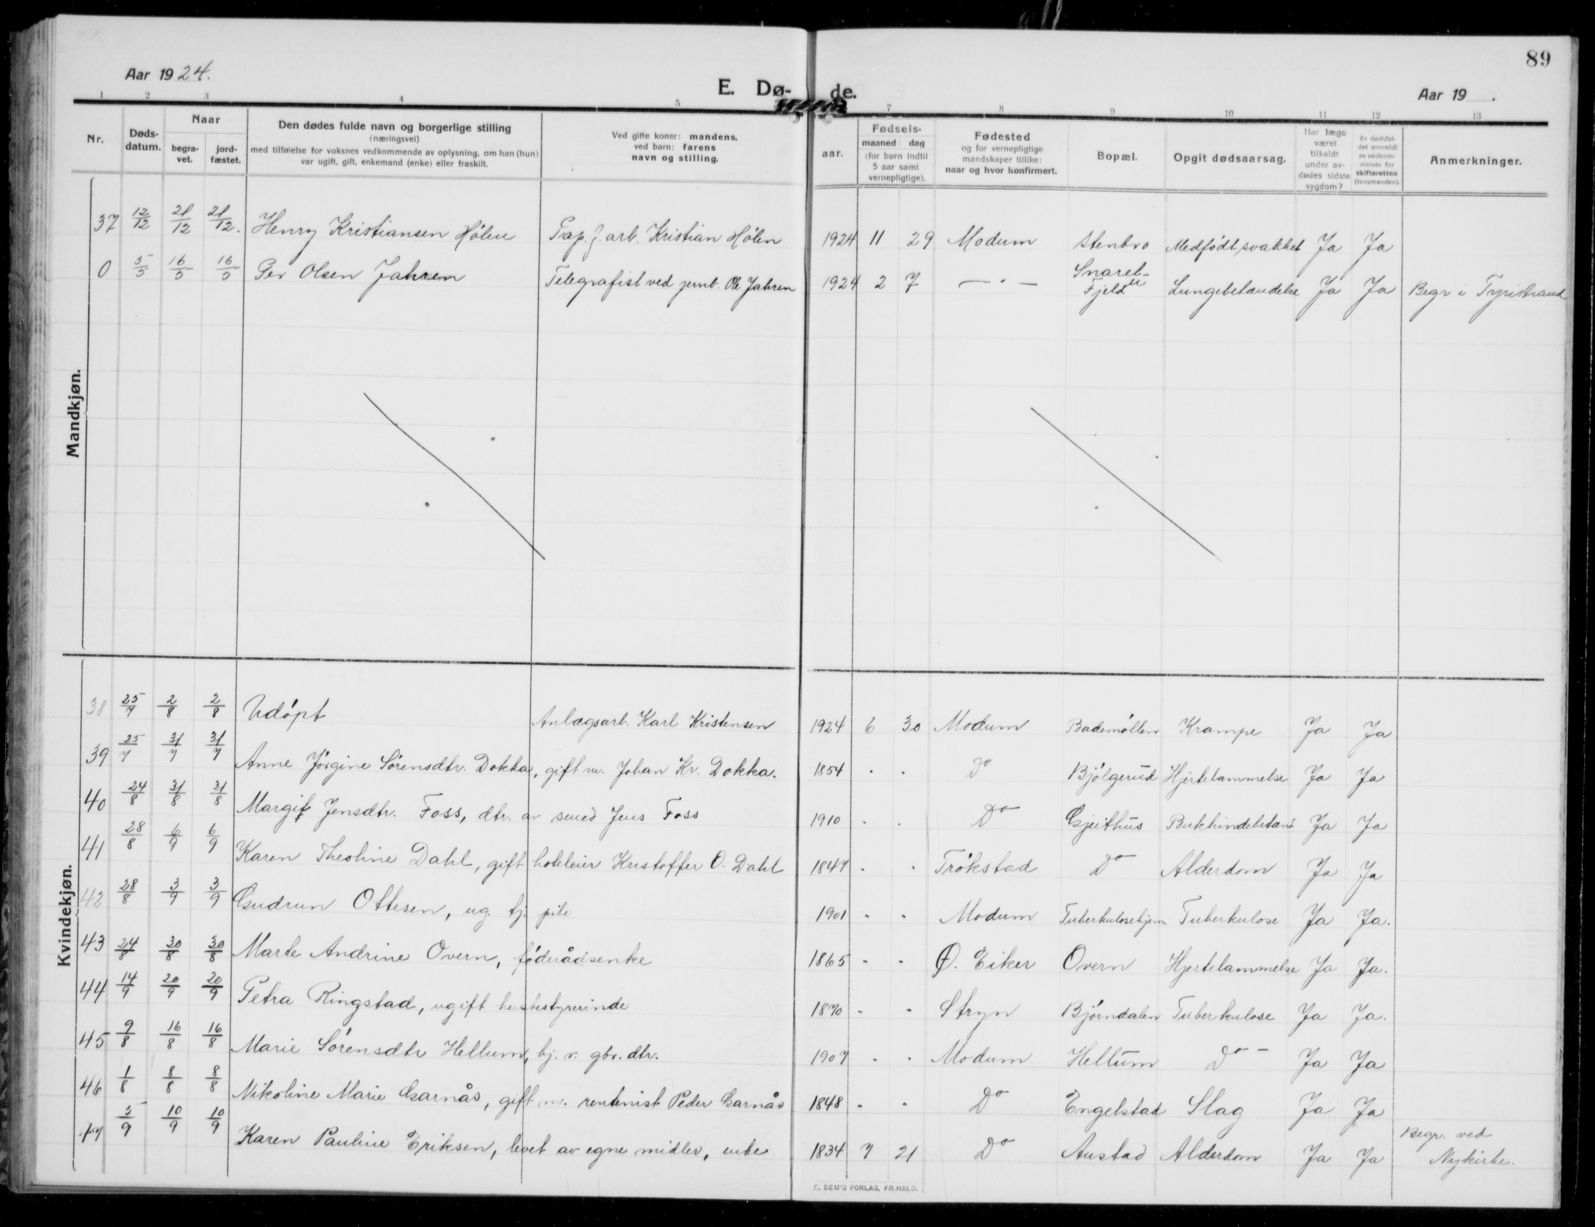 89
Aar 1924.
E. Dø- de.
Aar 19 .
1 2 3 4 5 7 8 9 10 11 12 13
Nr.
Døds-
datum.
Naar
begra-
vet.
jord-
fæstet.
Den dødes fulde navn og borgerlige stilling
(næringsvei)
med tilføielse for voksnes vedkommende av oplysning, om han (hun)
var ugift, gift, enkemand (enke) eller fraskilt.
Ved gifte koner: mandens.
ved barn: farens
navn og stilling.
Fødsels-
aar.
maaned dag
(for barn indtil
5 aar samt
vernepligtige).
Fødested
og for vernepligtige
mandskaper tillike:
naar og hvor konfirmert.
Bopæl.
Opgit dødsaarsag.
Har læge
været
tilkaldt
under av-
dødes sidste
sygdom?
Er dødsfal-
det anmeldt
av vedkom-
mende for
skifteretten
(lensmanden).
Anmerkninger.
Mandkjøn.
37 12/12 21/12 21/12. Henry Kristiansen Hølen Pap. f. arb. Kristian Hølen 1924 11 29 Modum Stenbro Medfødt svakhet Ja Ja
0 5/5 16/5 16/5 Per Olsen Jahren Telegrafist ved jernb. Ole Jahren 1924 2 7 — " — Snaret- Fjeld Lungebetændelse Ja Ja Begr. i Tyristrand
Kvindekjøn.
38 25/7 2/8 2/8 Udøpt Anlægsarb. Karl Kristensen 1924 6 30 Modum Bademøllen Krampe Ja Ja
39 25/7 31/7 31/7 Anne Jørgine Sørensdtr. Dokka, gift m. Johan Kr. Dokka. 1854 " " Do Bjølgerud Hjertelammelse Ja Ja
40 24/8 31/8 31/8 Margit Jensdtr. Foss, dtr. av smed Jens Foss 1910 " " Do Gjeithus Bukhindebetænd Ja Ja
41 28/8 6/9 6/9 Karen Theoline Dahl, gift hoteleier Kristoffer O. Dahl 1847 " " Trøkstad Do Alderdom Ja Ja
42 28/8 3/9 3/9 Gudrun Ottesen, ug. tj. pike 1901 " " Modum Tuberkulosehjem Tuberkulose Ja Ja.
43 24/8 30/8 30/8 Marte Andrine Overn, føderådsenke 1865 " " Ø. Eiker Overn Hjertelammelse Ja Ja.
44 14/9 20/9 20/9 Petra Ringstad, ugift husbestyrerinde 1870 " " Stryn Bjørndalen Tuberkulose Ja Ja.
45 9/8 16/8 16/8 Marie Sørensdtr Hellum, hj. v. gbr. dtr. 1907 " " Modum Hellum Do — Ja Ja
46 1/8 8/8 8/8 Nikoline Marie Garnås, gift m. rentenist Peder Garnås 1848 " " Do Engelstad Slag Ja Ja
47 5/9 10/9 10/9 Karen Pauline Eriksen, levet av egne midler, enke 1834 7 21 Do Austad Alderdom Ja Ja Begr. ved Nykirke.
E. SEM'S FORLAG, FR.HALD.